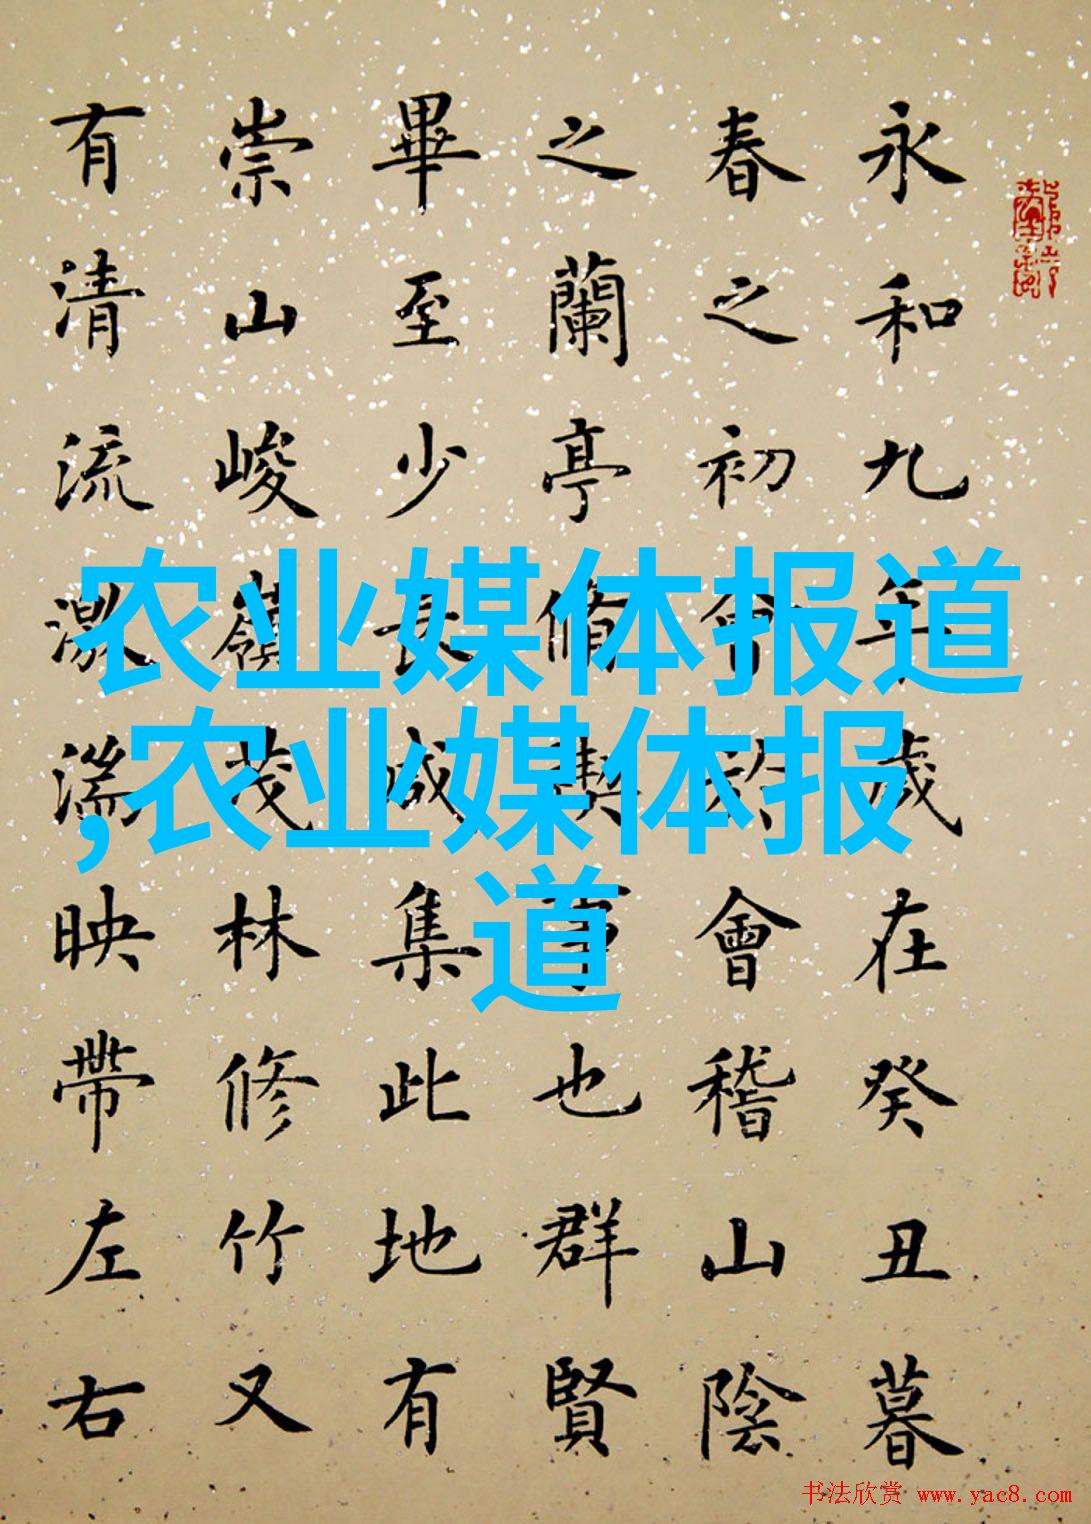 永和九年歲在癸丑暮
春之初會於會稽山陰
之蘭亭脩禊事也群賢
畢至少長咸集此地有
崇山峻嶺茂林修竹又
有清流激湍映帶左右
农业媒体报道
,农业媒体报
道
书法欣赏 www.yac8.com